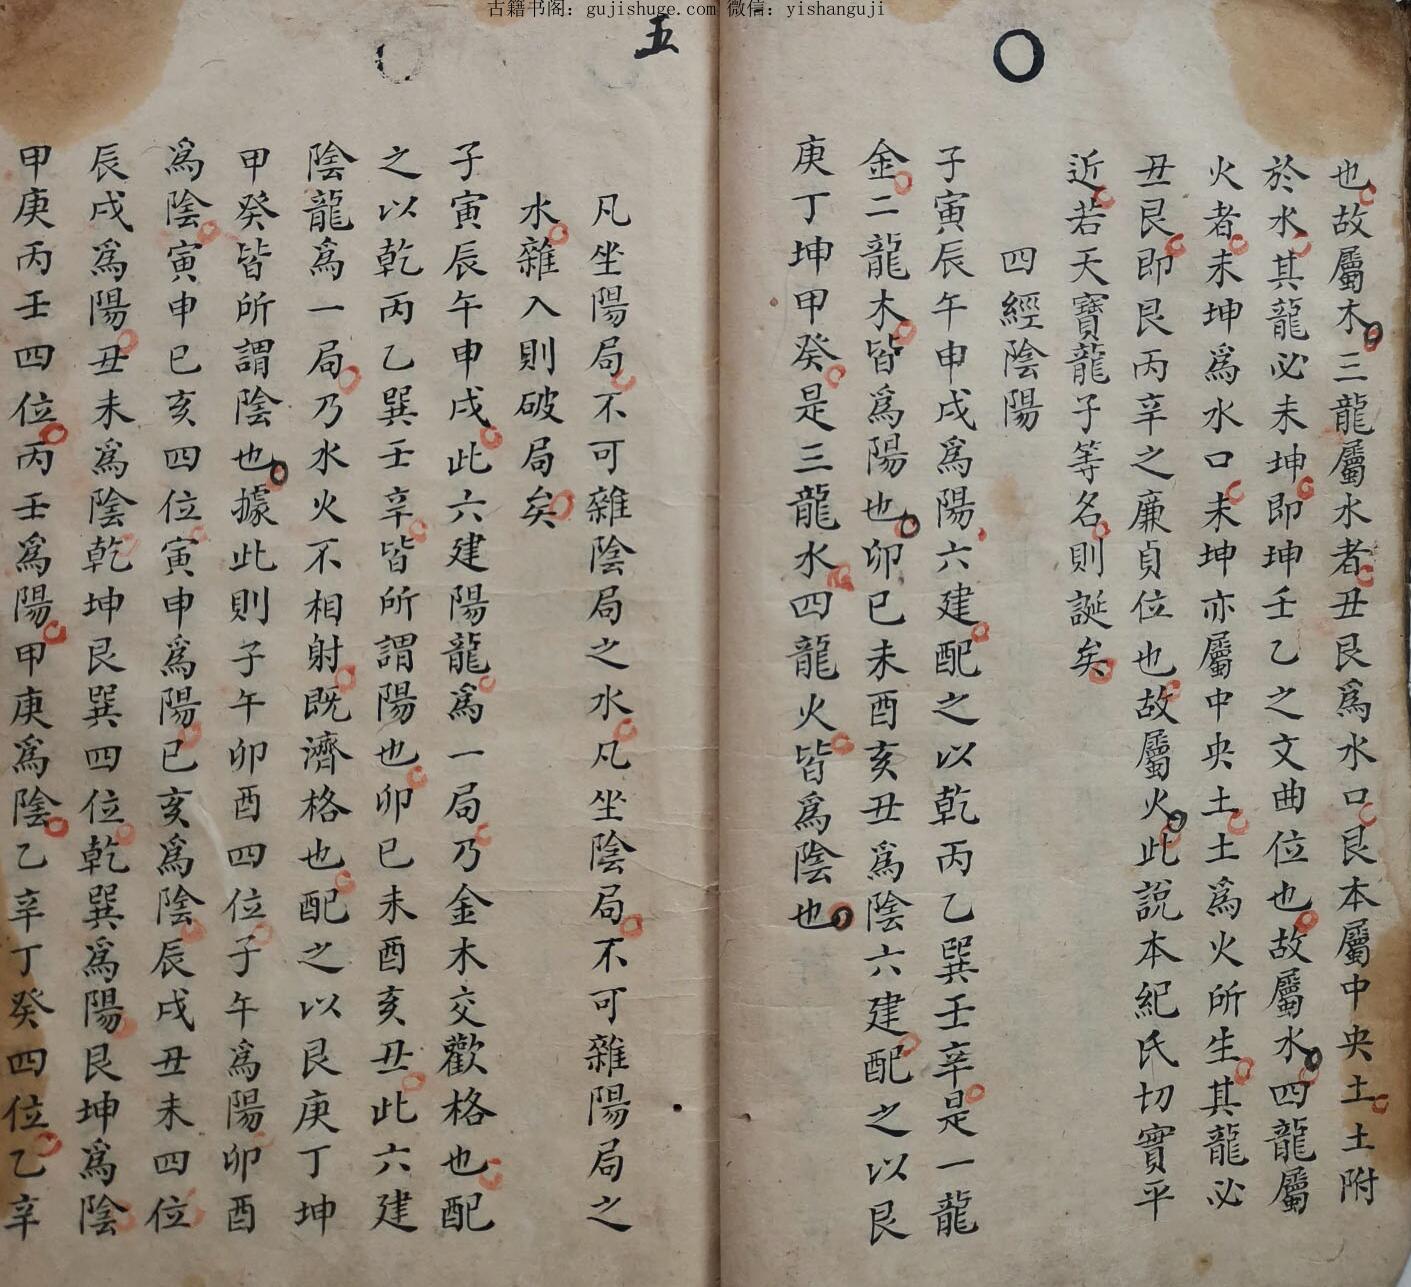 古籍书阁：gujishuge.com 微信：yishanguji
也故屬木三龍屬水者丑艮爲水口艮本屬中央土土附
於水其龍必未坤即坤壬乙之文曲位也故屬水四龍屬
火者未坤爲水口未坤亦屬中央土土爲火所生其龍必
丑艮即艮丙辛之廉貞位也故屬火此說本紀氏切實平
近若天寶龍子等名則誕矣
四經陰陽
子寅辰午申戌爲陽六建配之以乾丙乙巽壬辛是一龍
金二龍木皆爲陽也卯巳未酉亥丑爲陰六建配之以艮
庚丁坤甲癸是三龍水四龍火皆爲陰也
五
凡坐陽局不可雜陰局之水凡坐陰局不可雜陽局之
水雜入則破局矣
子寅辰午申戌此六建陽龍爲一局乃金木交歡格也配
之以乾丙乙巽壬辛皆所謂陽也卯巳未酉亥丑此六建
陰龍爲一局乃水火不相射既濟格也配之以艮庚丁坤
甲癸皆所謂陰也據此則子午卯酉四位子午爲陽卯酉
爲陰寅申巳亥四位寅申爲陽巳亥爲陰辰戌丑未四位
辰戌爲陽丑未爲陰乾坤艮巽四位乾巽爲陽艮坤爲陰
甲庚丙壬四位丙壬爲陽甲庚爲陰乙辛丁癸四位乙辛